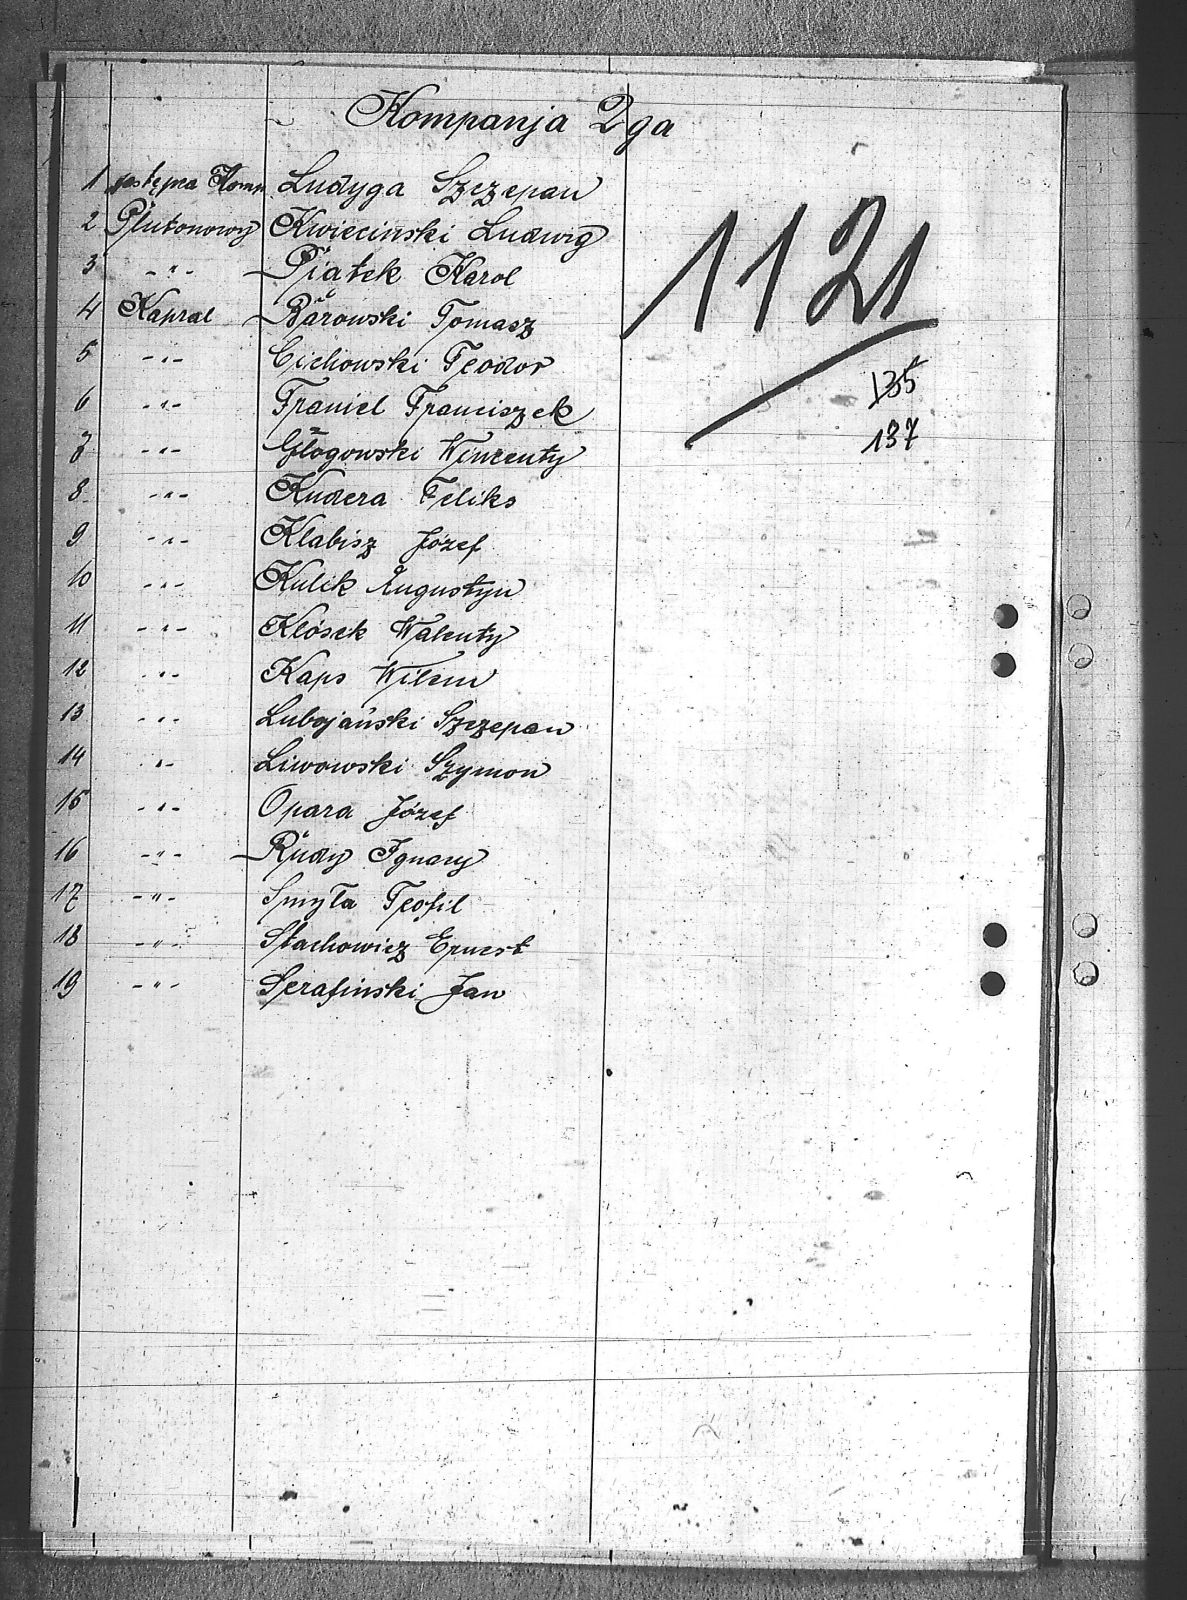 Kompanja 2ga
1 zastępca Komp Ludyga Szczepan
2 Plutonowy Kwieciński Ludwig
3 -"- Piatek Karol
4 Kapral Barowski Tomasz
5 -"- Cichowski Teodor
6 -"- Franiel Franciszek
7 -"- Głogowski Wincenty
8 -"- Kudera Feliks
9 -"- Klabisz Józef
10 -"- Kulik Augustyn
11 -"- Klósek Walenty
12 -"- Kaps Wilem
13 -"- Lubojański Szczepan
14 -"- Liwowski Szymon
15 -"- Opara Józef
16 -"- Rudy Ignacy
17 -"- Smyła Teofil
18 -"- Stachowicz Ernest
19 -"- Serafinski Jan
1121
135
137